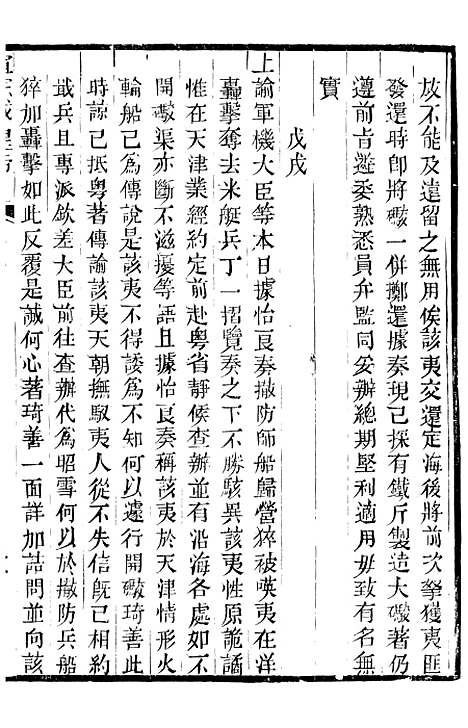 放不能及遠留之無用俟該夷交還定海後將前次拏獲夷匪
發還時卽將礮一併擲還據奏現已採有鐵斤製造大礮著仍
遵前旨遴委熟悉員弁監同妥辦總期堅利適用毋致有名無
實
戊戌
上諭軍機大臣等本日據怡良奏撤防師船歸營猝被嘆夷在洋
轟擊奪去米艇兵丁一摺覽奏之下不勝駭異該夷性原詭譎
惟在天津業經約定前赴粵省靜候查辦並有沿海各處如不
開礮渠亦斷不滋擾等語且據怡良奏稱該夷於天津情形火
輪船已爲傳說是該夷不得諉爲不知何以遽行開礮琦善此
時諒已抵粵著傳諭該夷天朝撫馭夷人從不失信旣已各處
戢兵且專派欽差大臣前往查辦代爲昭雪何以於撤防兵船
猝加轟擊如此反覆是誠何心著琦善一面詳加詰問並向該